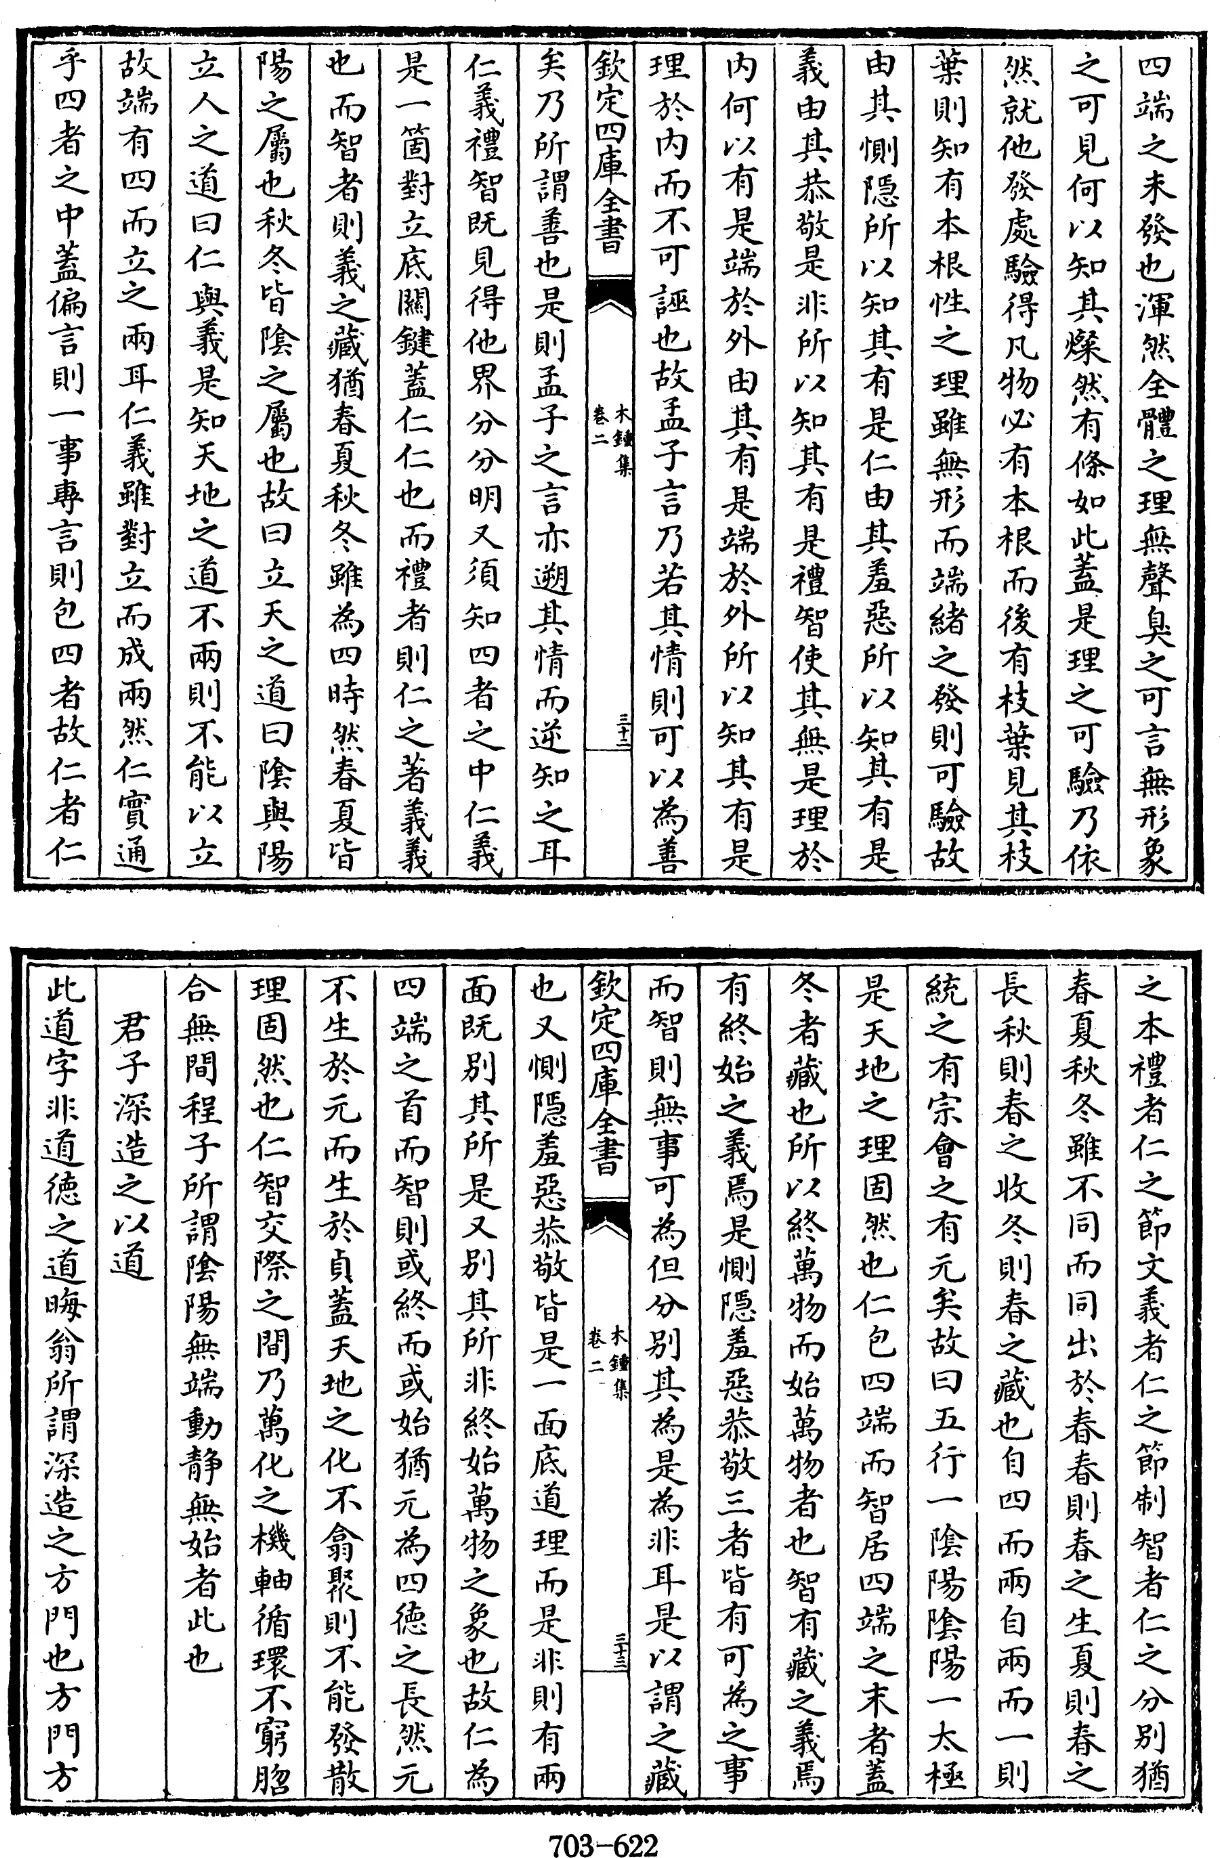 四端之未發也渾然全體之理無聲臭之可言無形象
之可見何以知其燦然有條如此蓋是理之可驗乃依
然就他發處驗得凡物必有本根而後有枝葉見其枝
葉則知有本根性之理雖無形而端緒之發則可驗故
由其惻隠所以知其有是仁由其羞惡所以知其有是
義由其恭敬是非所以知其有是禮智使其無是理於
内何以有是端於外由其有是端於外所以知其有是
理於内而不可誣也故孟子言乃若其情則可以為善
欽定四庫全書
木鍾集
卷二
三十二
矣乃所謂善也是則孟子之言亦遡其情而逆知之耳
仁義禮智既見得他界分分明又須知四者之中仁義
是一箇對立底關鍵蓋仁仁也而禮者則仁之著義義
也而智者則義之藏猶春夏秋冬雖為四時然春夏皆
陽之屬也秋冬皆隂之屬也故曰立天之道曰隂與陽
立人之道曰仁與義是知天地之道不兩則不能以立
故端有四而立之兩耳仁義雖對立而成兩然仁實通
乎四者之中蓋偏言則一事專言則包四者故仁者仁
之本禮者仁之節文義者仁之節制智者仁之分别猶
春夏秋冬雖不同而同出於春春則春之生夏則春之
長秋則春之收冬則春之藏也自四而兩自兩而一則
統之有宗會之有元矣故曰五行一隂陽隂陽一太極
是天地之理固然也仁包四端而智居四端之末者蓋
冬者藏也所以終萬物而始萬物者也智有藏之義焉
有終始之義焉是惻隠羞惡恭敬三者皆有可為之事
而智則無事可為但分别其為是為非耳是以謂之藏
欽定四庫全書
木鍾集
卷二
三十三
也又惻隠羞惡恭敬皆是一面底道理而是非則有兩
面既别其所是又别其所非終始萬物之象也故仁為
四端之首而智則或終而或始猶元為四德之長然元
不生於元而生於貞蓋天地之化不翕聚則不能發散
理固然也仁智交際之間乃萬化之機軸循環不窮脗
合無間程子所謂隂陽無端動静無始者此也
君子深造之以道
此道字非道徳之道晦翁所謂深造之方門也方門方
703-622